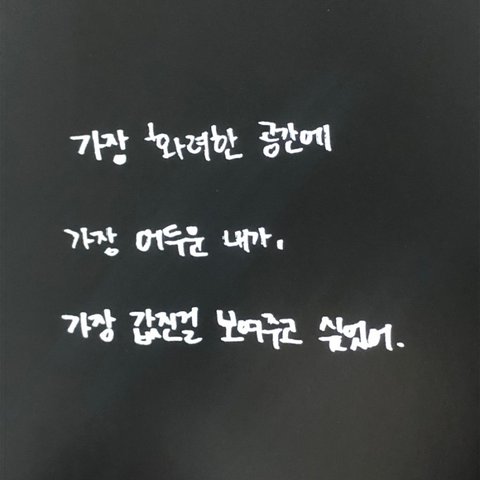 가장 화려한 공간에
가장 어두운 내가.
가장 값진걸 보여주고 싶었어.